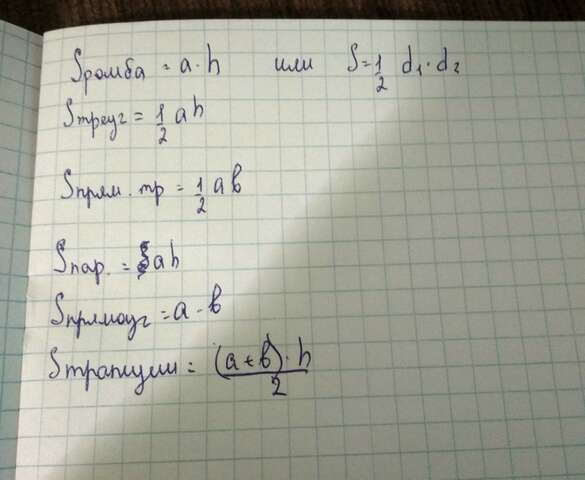 Sромба = a·h или S=1/2 d₁·d₂
Sтреуг = 1/2 ah
Sпрям. тр = 1/2 ab
Sпар. = ah
Sпрямоуг = a·b
Sтрапеции = (a+b)·h/2